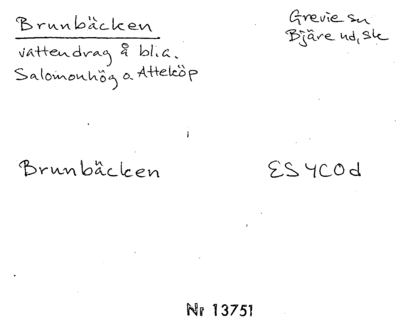 Brunbäcken
Grevie sn
Bjäre hd, Sk
vattendrag å bl.a.
Salomonhög o Atteköp
Brunbäcken
ES4COd
Nr 13751